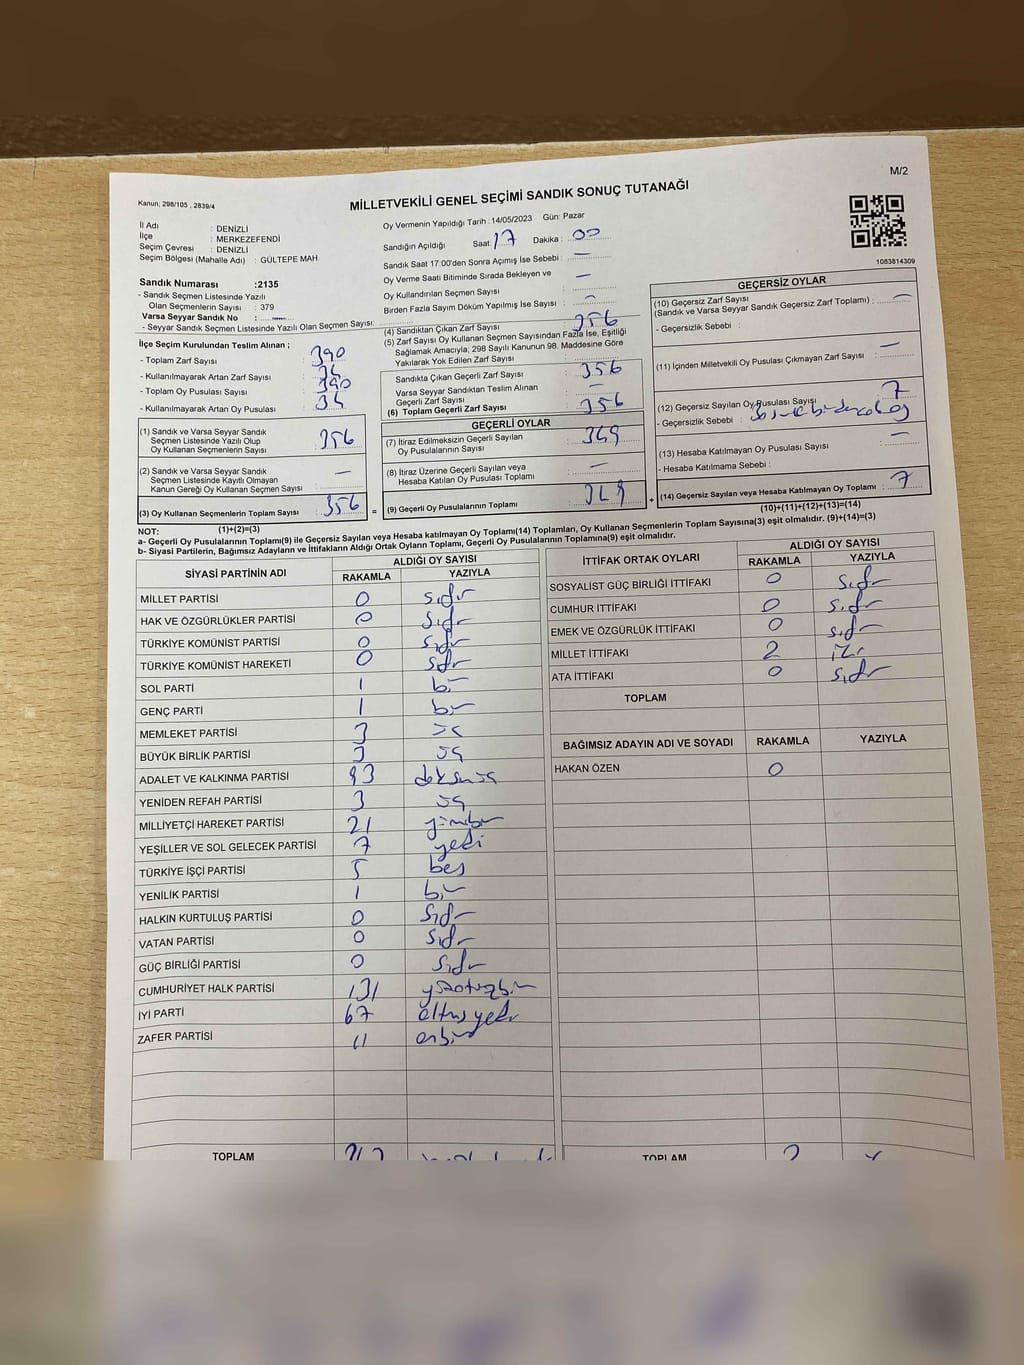 M/2
Kanun: 298/105 , 2839/4
MİLLETVEKİLİ GENEL SEÇİMİ SANDIK SONUÇ TUTANAĞI
İl Adı : DENİZLİ
İlçe : MERKEZEFENDİ
Seçim Çevresi : DENİZLİ
Seçim Bölgesi (Mahalle Adı) : GÜLTEPE MAH.
Oy Vermenin Yapıldığı Tarih : 14/05/2023 Gün: Pazar
Sandığın Açıldığı Saat 17 Dakika : 00
Sandık Saat 17:00'den Sonra Açımış İse Sebebi : —
Oy Verme Saati Bitiminde Sırada Bekleyen ve
Oy Kullandırılan Seçmen Sayısı : —
Birden Fazla Sayım Döküm Yapılmış İse Sayısı : —
1083814309
Sandık Numarası :2135
- Sandık Seçmen Listesinde Yazılı
Olan Seçmenlerin Sayısı : 379
Varsa Seyyar Sandık No : —
- Seyyar Sandık Seçmen Listesinde Yazılı Olan Seçmen Sayısı:
İlçe Seçim Kurulundan Teslim Alınan ;
- Toplam Zarf Sayısı : 390
- Kullanılmayarak Artan Zarf Sayısı : 34
- Toplam Oy Pusulası Sayısı : 390
- Kullanılmayarak Artan Oy Pusulası : 34
(1) Sandık ve Varsa Seyyar Sandık
Seçmen Listesinde Yazılı Olup
Oy Kullanan Seçmenlerin Sayısı : 356
(2) Sandık ve Varsa Seyyar Sandık
Seçmen Listesinde Kayıtlı Olmayan
Kanun Gereği Oy Kullanan Seçmen Sayısı : —
(3) Oy Kullanan Seçmenlerin Toplam Sayısı : 356 =
(1)+(2)=(3)
(4) Sandıktan Çıkan Zarf Sayısı : 356
(5) Zarf Sayısı Oy Kullanan Seçmen Sayısından Fazla İse, Eşitliği
Sağlamak Amacıyla, 298 Sayılı Kanunun 98. Maddesine Göre
Yakılarak Yok Edilen Zarf Sayısı :
Sandıkta Çıkan Geçerli Zarf Sayısı : 356
Varsa Seyyar Sandıktan Teslim Alınan
Geçerli Zarf Sayısı : —
(6) Toplam Geçerli Zarf Sayısı : 356
GEÇERLİ OYLAR
(7) İtiraz Edilmeksizin Geçerli Sayılan
Oy Pusulalarının Sayısı : 349
(8) İtiraz Üzerine Geçerli Sayılan veya
Hesaba Katılan Oy Pusulası Toplamı : —
(9) Geçerli Oy Pusulalarının Toplamı : 349 +
GEÇERSİZ OYLAR
(10) Geçersiz Zarf Sayısı
(Sandık ve Varsa Seyyar Sandık Geçersiz Zarf Toplamı) : —
- Geçersizlik Sebebi :
(11) İçinden Milletvekili Oy Pusulası Çıkmayan Zarf Sayısı : —
(12) Geçersiz Sayılan Oy Pusulası Sayısı : 7
- Geçersizlik Sebebi :
(13) Hesaba Katılmayan Oy Pusulası Sayısı : —
- Hesaba Katılmama Sebebi :
(14) Geçersiz Sayılan veya Hesaba Katılmayan Oy Toplamı : 7
(10)+(11)+(12)+(13)=(14)
NOT:
a- Geçerli Oy Pusulalarının Toplamı(9) ile Geçersiz Sayılan veya Hesaba katılmayan Oy Toplamı(14) Toplamları, Oy Kullanan Seçmenlerin Toplam Sayısına(3) eşit olmalıdır. (9)+(14)=(3)
b- Siyasi Partilerin, Bağımsız Adayların ve İttifakların Aldığı Ortak Oyların Toplamı, Geçerli Oy Pusulalarının Toplamına(9) eşit olmalıdır.
SİYASİ PARTİNİN ADI ALDIĞI OY SAYISI
RAKAMLA YAZIYLA
MİLLET PARTİSİ 0 sıfır
HAK VE ÖZGÜRLÜKLER PARTİSİ 0 sıfır
TÜRKİYE KOMÜNİST PARTİSİ 0 sıfır
TÜRKİYE KOMÜNİST HAREKETİ 0 sıfır
SOL PARTİ 1 bir
GENÇ PARTİ 1 bir
MEMLEKET PARTİSİ 3 üç
BÜYÜK BİRLİK PARTİSİ 3 üç
ADALET VE KALKINMA PARTİSİ 93 doksanüç
YENİDEN REFAH PARTİSİ 3 üç
MİLLİYETÇİ HAREKET PARTİSİ 21 yirmibir
YEŞİLLER VE SOL GELECEK PARTİSİ 7 yedi
TÜRKİYE İŞÇİ PARTİSİ 5 beş
YENİLİK PARTİSİ 1 bir
HALKIN KURTULUŞ PARTİSİ 0 sıfır
VATAN PARTİSİ 0 sıfır
GÜÇ BİRLİĞİ PARTİSİ 0 sıfır
CUMHURİYET HALK PARTİSİ 131 yüzotuzbir
İYİ PARTİ 67 altmışyedi
ZAFER PARTİSİ 11 onbir
TOPLAM
İTTİFAK ORTAK OYLARI ALDIĞI OY SAYISI
RAKAMLA YAZIYLA
SOSYALİST GÜÇ BİRLİĞİ İTTİFAKI 0 sıfır
CUMHUR İTTİFAKI 0 sıfır
EMEK VE ÖZGÜRLÜK İTTİFAKI 0 sıfır
MİLLET İTTİFAKI 2 iki
ATA İTTİFAKI 0 sıfır
TOPLAM
BAĞIMSIZ ADAYIN ADI VE SOYADI RAKAMLA YAZIYLA
HAKAN ÖZEN 0
TOPLAM 2